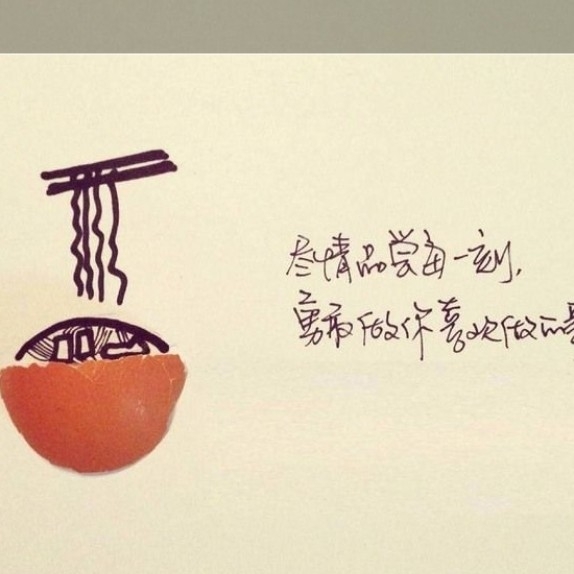 尽情品尝每一刻,
勇敢做你喜欢做的